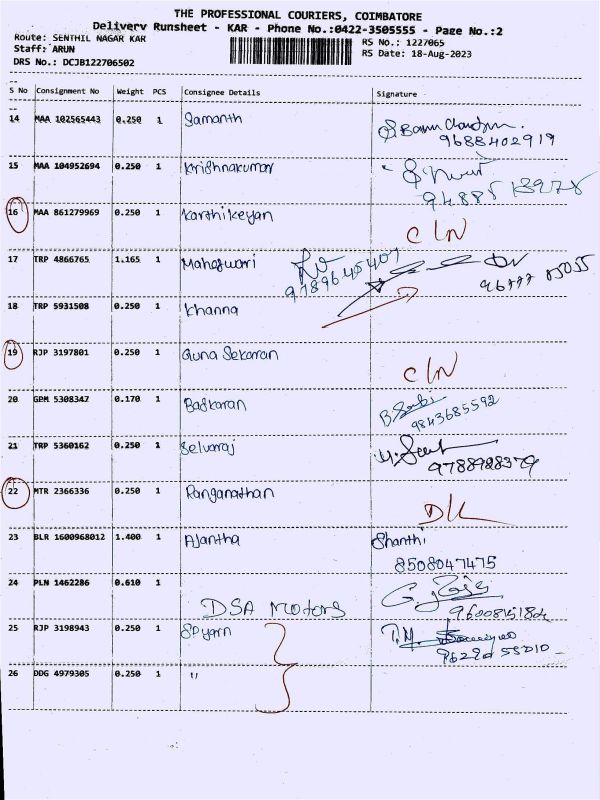 THE PROFESSIONAL COURIERS, COIMBATORE
Delivery Runsheet - KAR - Phone No.:0422-3505555 - Page No.:2
Route: SENTHIL NAGAR KAR
RS No.: 1227065
Staff: ARUN
RS Date: 18-Aug-2023
DRS No.: DCJB122706502
S No Consignment No Weight PCS Consignee Details Signature
14 MAA 102565443 0.250 1 Samanth
9688402919
15 MAA 104952694 0.250 1 Krishnakumar
16 MAA 861279969 0.250 1 Karthikeyan
C/N
17 TRP 4866765 1.165 1 Maheswari
9789645407
18 TRP 5931508 0.250 1 Khanna
19 RJP 3197801 0.250 1 Guna Sekaran
C/N
20 GPM 5308347 0.170 1 Baskaran
9843685592
21 TRP 5360162 0.250 1 Selvaraj
9788928379
22 MTR 2366336 0.250 1 Ranganathan
D/L
23 BLR 1600968012 1.400 1 Ajantha Shanthi
8508047475
24 PLN 1462286 0.610 1
DSA Motors
25 RJP 3198943 0.250 1 SPyarn
26 DDG 4979305 0.250 1 "